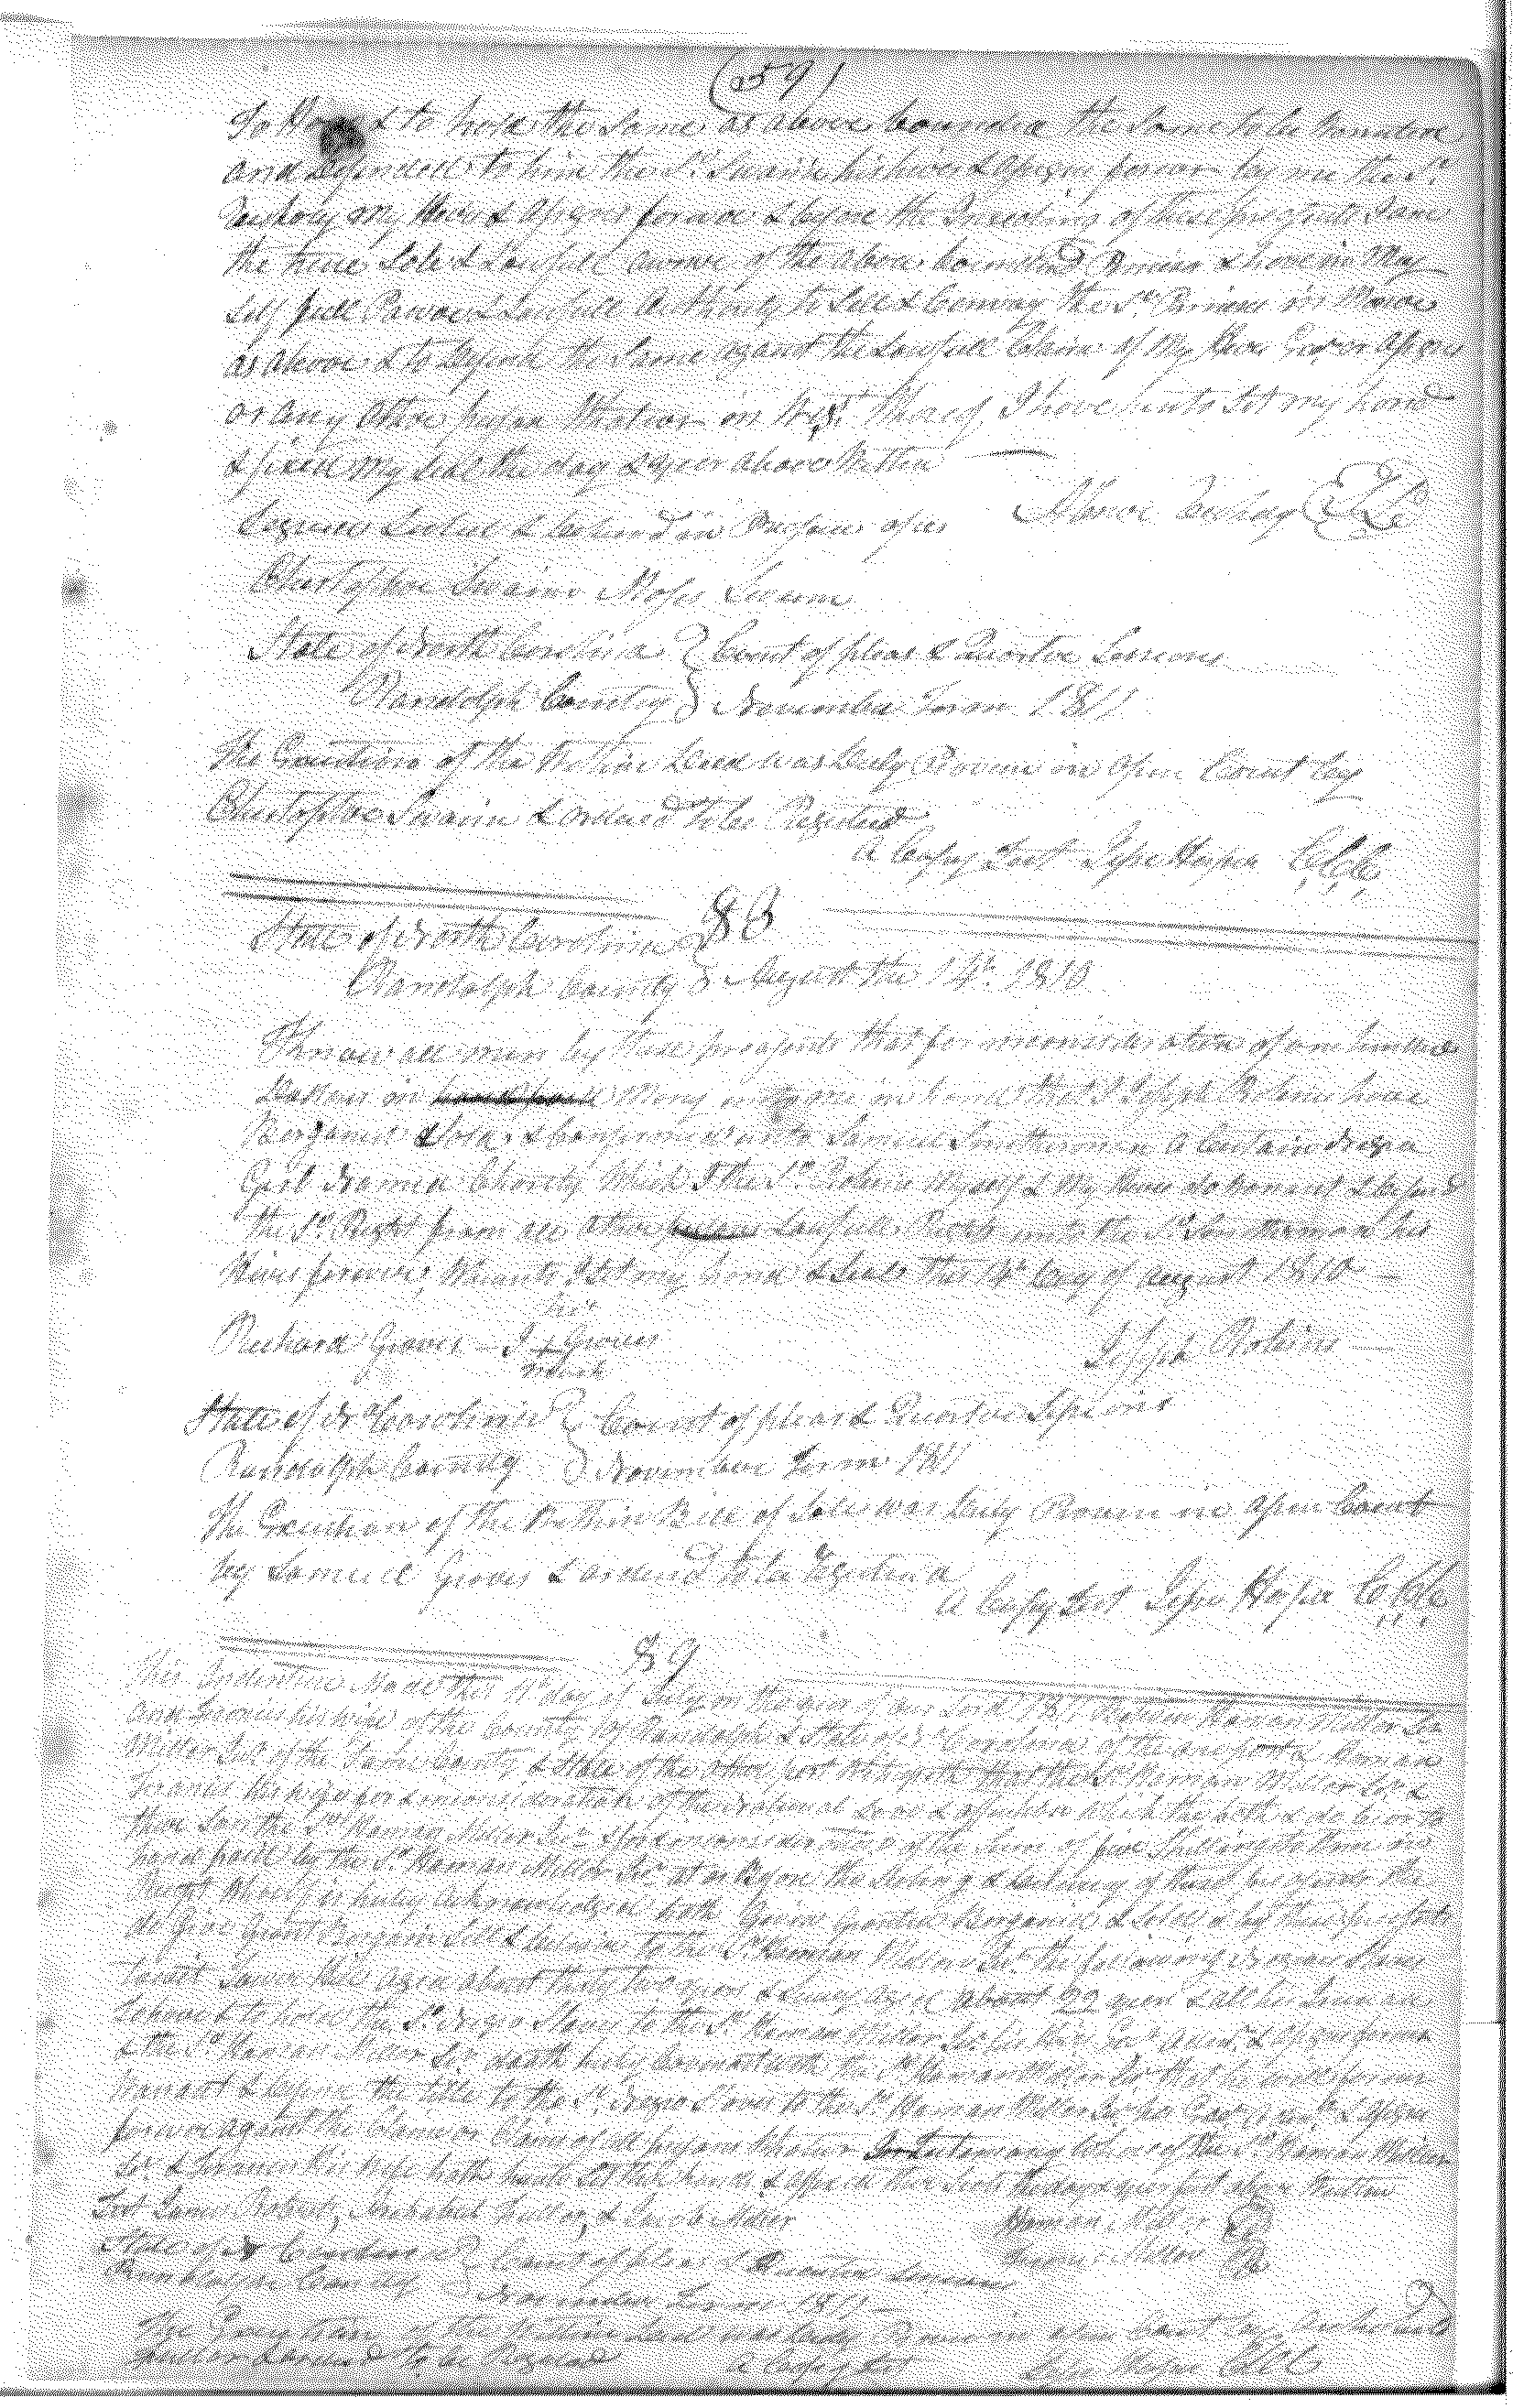 (59)
To Have & to hold the same as above bounded the same to be Warranted
and defended to him the Sd. Swaim his heirs & assigns forever by me the Sd.
my heirs & assigns forever & before the Insealing of these presents I am
the true Sole & Lawfull owner of the above bounded Premises & have in My
Self full Power & Lawfull Authority to Sell & Convey the Sd. Premises in Manner
as above & to Defend the Same against the Lawfull Claim of My Heirs Exrs or assigns
or any other person Whatever in Thereof I have hereto Set my hand
& fixed my Seal the day & year above Written
Signed Sealed & Delivered in Presence of us
Christopher Swaim Moses Swaim
State of North Carolina } Court of pleas & Quarter Sessions
Randolph County } November Term 1811
The Execution of the Within Deed was Duly Proven in Open Court by
Christopher Swaim & ordered to be Registered
A Copy Test Jesse Harper C.C.C.
88
State of North Carolina }
Randolph County } August the 14th. 1810
Know all men by these presents that for inconsideration of one hundred
Dollars in Money unto me in hand that I Joseph Robins have
Bargained & Sold & Confirmed unto Samuel a Certain Negro
Girl Named Charity Which I the Sd. Robins Myself & My Heirs do Warrant & defend
the Sd. Right from all other Lawfull Right unto the Sd. his
Heirs forever, Whereunto I Set my hand & Seal this 14th day of August 1810
his
Richard Graves — I + Graves Joseph Robins
mark
State of No. Carolina } Court of pleas & Quarter Sessions
Randolph County } November Term 1811
The Execution of the Within Bill of Sale was Duly Proven in Open Court
by Samuel Graves & ordered to be Registered
A Copy Test Jesse Harper C.C.C.
89
This Indenture Made this 11th day of July in the year of our Lord 1811 Between Haman Miller Sr.
and Francis his wife of the County of Randolph & State of No. Carolina of the one part & Haman
Miller Jur. of the Same County & State of the other part Witnesseth that the Sd. Haman Miller Sr. &
Francis his wife for & inconsideration of the Natural Love & affection which the both & do bear to
there Son the Sd. Haman Miller Jur. & for & inconsideration of the Sum of five Shillings to them in
hand paid by the Sd. Haman Miller Jur. at or Before the Sealing & delivery of these presents the
Receipt Whereof is hereby Acknowledged hath Given Granted Bargained & Sold & by these presents
do Give Grant Bargain Sell & deliver to the Sd. Haman Miller Jur. the following Negroes Slaves
towit aged about thirty two years & Lucy aged about 22 years & all her Increase
To have & to hold the Sd. Negro Slaves to the Sd. Haman Miller Jur. his Heirs Exrs. Admrs. & Assigns forever
& the Sd. Haman Miller Sr. doath hereby Covenant with the Sd. Haman Miller Jur. that he will forever
Warrant & defend the title to the Sd. Negro Slaves to the Sd. Haman Miller Jur. his & Assigns
forever against the Claim or Claims of all persons Whatever In Testimony Whereof the Sd. Haman Miller
Sr. & Francis his Wife hath hereto Set their hands & affixed their Seals the day & year first above Written
Test James Haman Miller
State of No. Carolina } Court of pleas & Quarter Sessions Francis Miller
Randolph County } November Term 1811
The Execution of the Within Deed was Duly Proven in open Court by
& ordered to be Registered A Copy Test Jesse Harper CCC